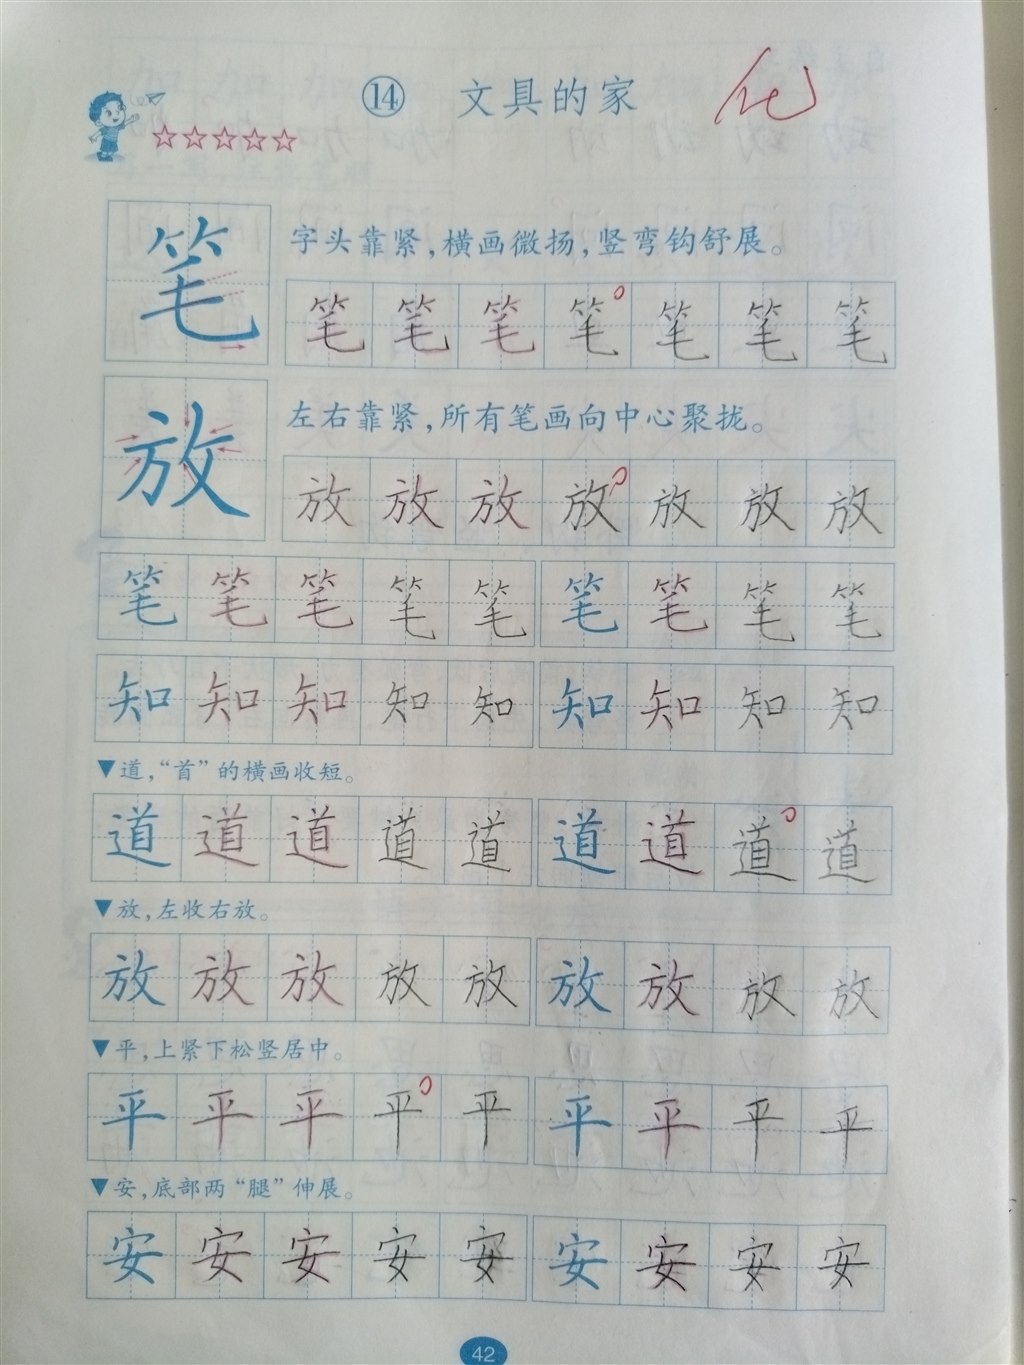 ⑭ 文具的家
☆☆☆☆☆
笔 字头靠紧，横画微扬，竖弯钩舒展。
笔 笔 笔 笔 笔 笔 笔
放 左右靠紧，所有笔画向中心聚拢。
放 放 放 放 放 放 放
笔 笔 笔 笔 笔 笔 笔 笔 笔
知 知 知 知 知 知 知 知 知
▼道，“首”的横画收短。
道 道 道 道 道 道 道 道 道
▼放，左收右放。
放 放 放 放 放 放 放 放 放
▼平，上紧下松竖居中。
平 平 平 平 平 平 平 平 平
▼安，底部两“腿”伸展。
安 安 安 安 安 安 安 安 安
42